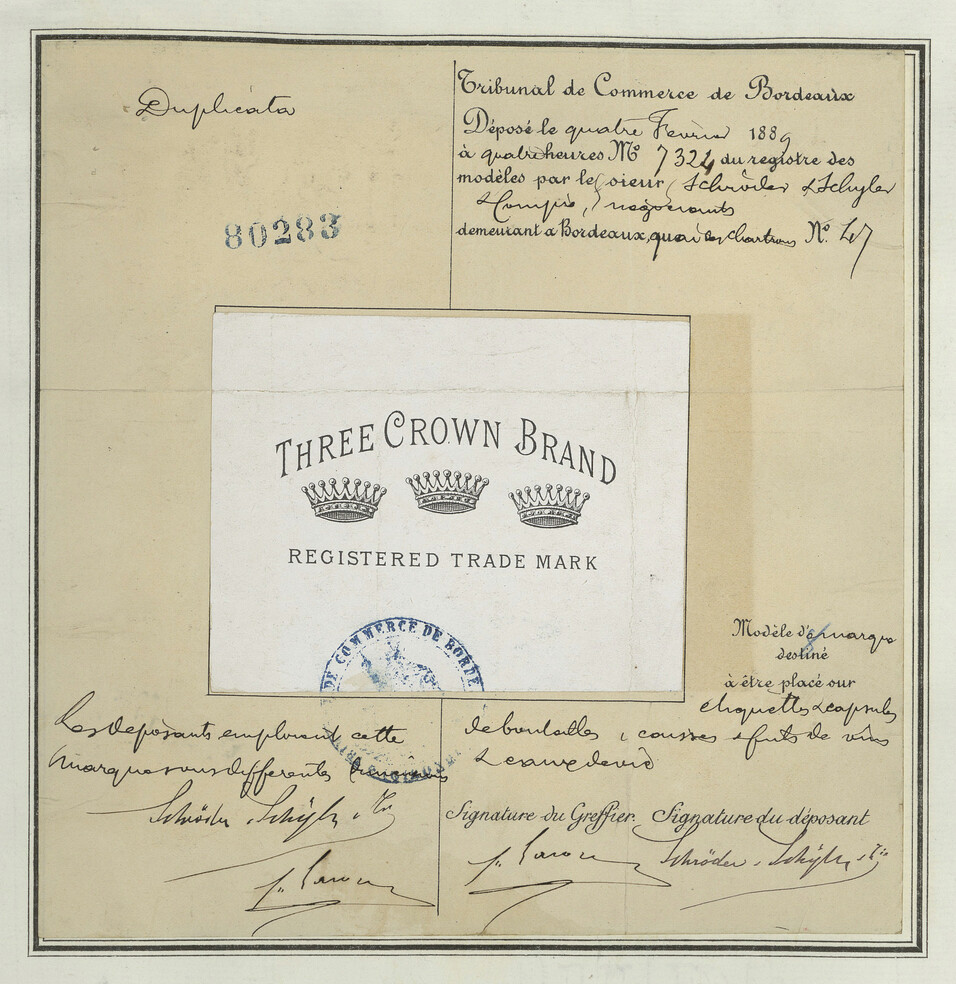 Duplicata
80283
Tribunal de Commerce de Bordeaux
Déposé le quatre Février 1889
à quatre heures No 7324 du registre des
modèles par le sieur Schröder & Schyler
& Compie, négociants
demeurant à Bordeaux, quai des Chartrons No. 47
THREE CROWN BRAND
REGISTERED TRADE MARK
DE COMMERCE DE BORDE
Modèle de marque
destiné
à être placé sur
étiquettes & capsules
de bouteilles, caisses & futs de vins
& eaux de vie
Les déposants emploient cette
marque sous différentes dimensions
Schröder & Schÿler & Cie
Signature du Greffier. Signature du déposant
Schröder & Schÿler & Cie